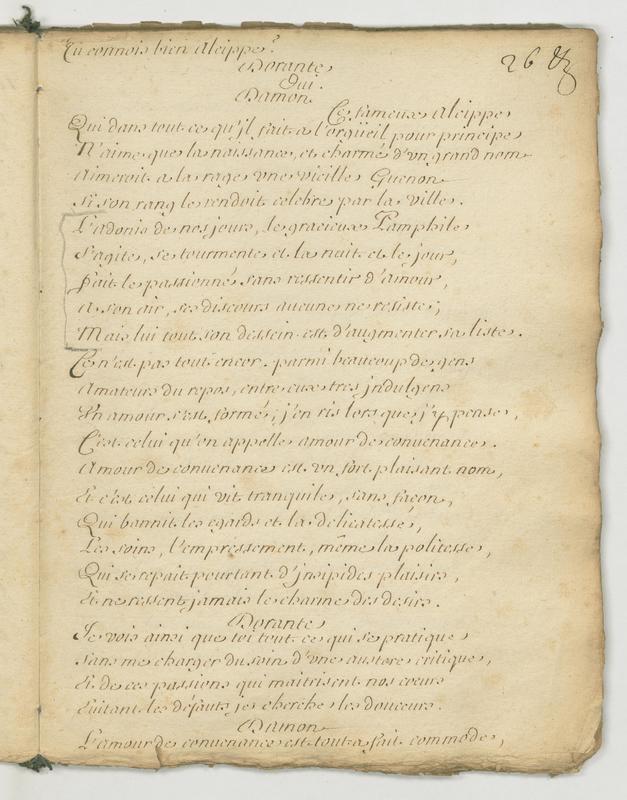 Tu connois bien Alcippe?
26
Dorante
Oui.
Damon
Ce fameux Alcippe
Qui dans tout ce qu'jl fait a l'orgüeil pour principe
N'aime que la naissance, et charmé d'vn grand nom
Aimeroit a la rage vne vieille Guenon
Si son rang le rendoit celebre par la ville.
L'adonis de nos jours, le gracieux Pamphile
S'agite, se tourmente et la nuit et le jour,
Fait le passionné sans ressentir d'amour,
A son air, ses discours aucune ne resiste;
Mais lui tout son dessein est d'augmenter sa liste.
Ce n'est pas tout encor. parmi beaucoup de gens
Amateurs du repos, entre eux tres jndulgens
Vn amour s'est formé; j'en ris lors que j'y pense,
C'est celui qu'on appelle amour de convenance.
Amour de convenance est vn fort plaisant nom,
Et c'est celui qui vit tranquile, sans façon,
Qui bannit les egards et la delicatesse,
Les soins, l'empressement, même la politesse,
Qui se repait pourtant d'jnsipides plaisirs,
Et ne ressent jamais le charme des desirs.
Dorante
Je vois ainsi que toi tout ce qui se pratique
Sans me charger du soin d'vne austere critique,
Et de ces passions qui maitrisent nos cœurs
Evitant les défauts je cherche les douceurs.
Damon
L'amour de convenance est tout a fait commode,